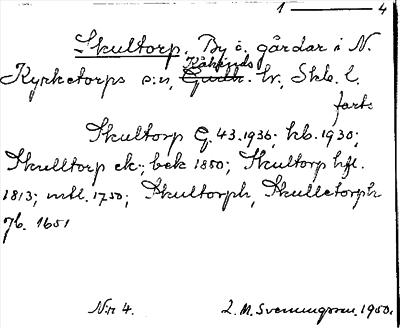 1 — 4
Skultorp. By o. gårdar i N.
Kåkinds
Kyrketorps s:n, Gudh. hr, Skb. l.
forts
Skultorp G. 43. 1936; kb. 1930;
Skulltorp ek; bek 1850; Skultorp hfl.
1813; mtl. 1750; Skultorph, Skulletorph
Jb. 1651
N:r 4. L. M. Svenungsson. 1950.